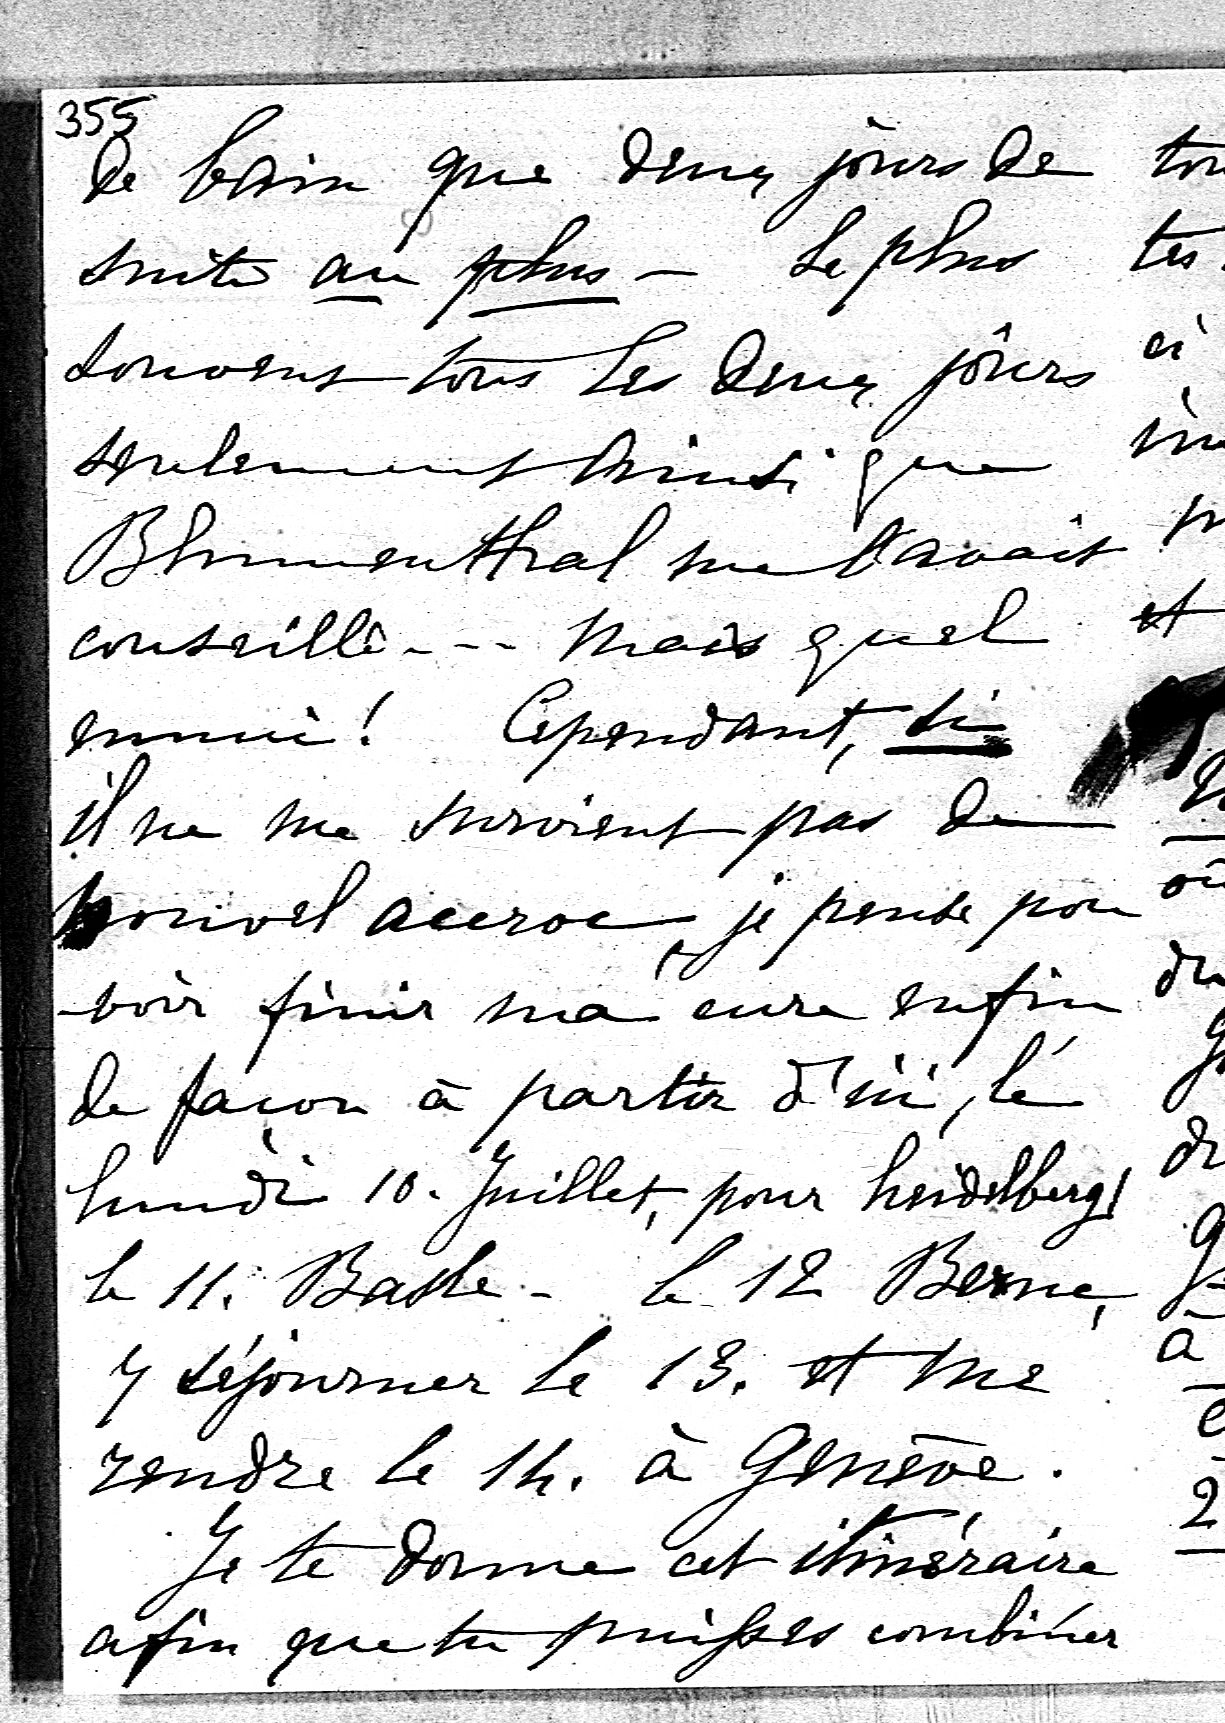 355
de bain que deux jours de
suite au plus - Le plus
souvent tous les deux jours
seulement ainsi que
Blumenthal me l'avait
conseillé --- Mais quel
ennui! Cependant, si
il ne me survient pas de
nouvel accroc, je pense pou
-voir finir ma cure enfin
de façon à partir d'ici, le
lundi 10. Juillet, pour heidelberg,
le 11. Basle - le 12 Berne,
y séjourner le 13. et me
rendre le 14. à Genève.
Je te donne cet itinéraire
afin que tu puisses combiner